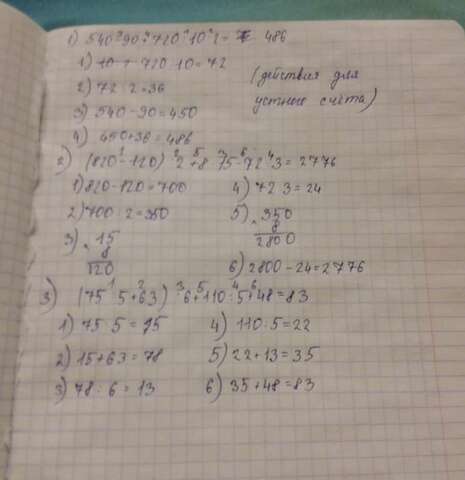 1) 540-90+720:10:2= 486
1) 720:10=72
2) 72:2=36
(действия для
устных счёта)
3) 540-90=450
4) 450+36=486
2) (820-120):2+8·75-72:3=2776
1) 820-120=700
4) 72:3=24
2) 700:2=350
5) 350
8
2800
3) 15
8
120
6) 2800-24=2776
3) (75:5+63):6+110:5+48=83
1) 75:5=15
4) 110:5=22
2) 15+63=78
5) 22+13=35
3) 78:6=13
6) 35+48=83